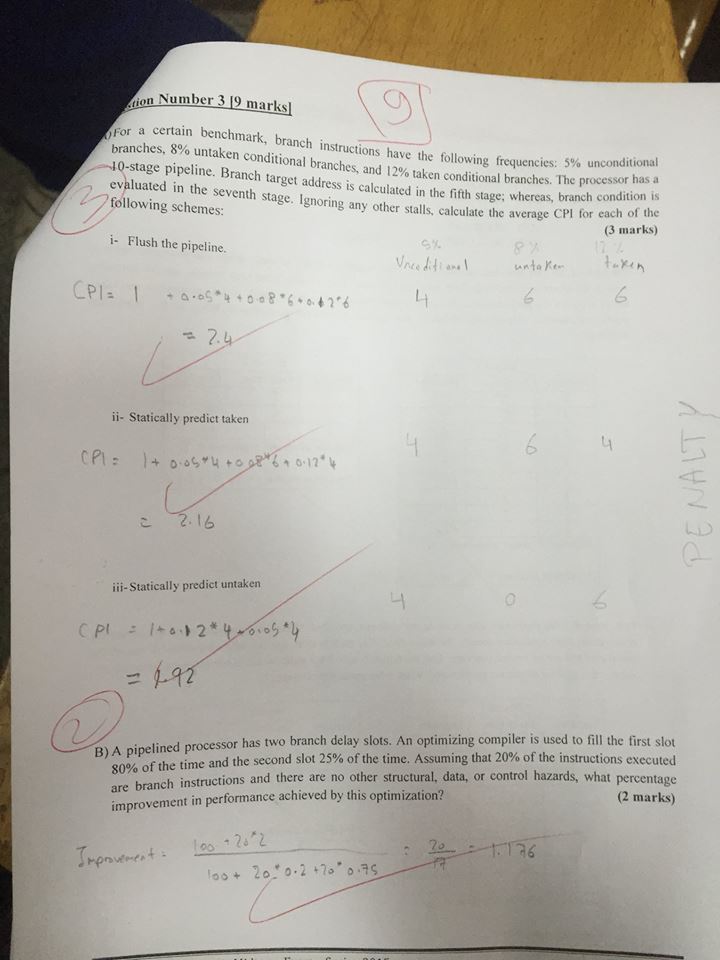 tion Number 3 [9 marks]
9
)For a certain benchmark, branch instructions have the following frequencies: 5% unconditional
branches, 8% untaken conditional branches, and 12% taken conditional branches. The processor has a
10-stage pipeline. Branch target address is calculated in the fifth stage; whereas, branch condition is
evaluated in the seventh stage. Ignoring any other stalls, calculate the average CPI for each of the
following schemes:
(3 marks)
3
i- Flush the pipeline.
5% 8% 12%
Uncoditional untaken taken
CPI = 1 + 0.05*4 + 0.08*6 + 0.12*6 4 6 6
= 2.4
ii- Statically predict taken
CPI = 1 + 0.05*4 + 0.08*6 + 0.12*4 4 6 4
= 2.16
PENALTY
iii- Statically predict untaken
4 0 6
CPI = 1 + 0.12*4 + 0.05*4
= 1.92
2
B) A pipelined processor has two branch delay slots. An optimizing compiler is used to fill the first slot
80% of the time and the second slot 25% of the time. Assuming that 20% of the instructions executed
are branch instructions and there are no other structural, data, or control hazards, what percentage
improvement in performance achieved by this optimization?
(2 marks)
Improvement = 100 + 20*2 = 20 = 1.176
100 + 20*0.2 + 20*0.75 17